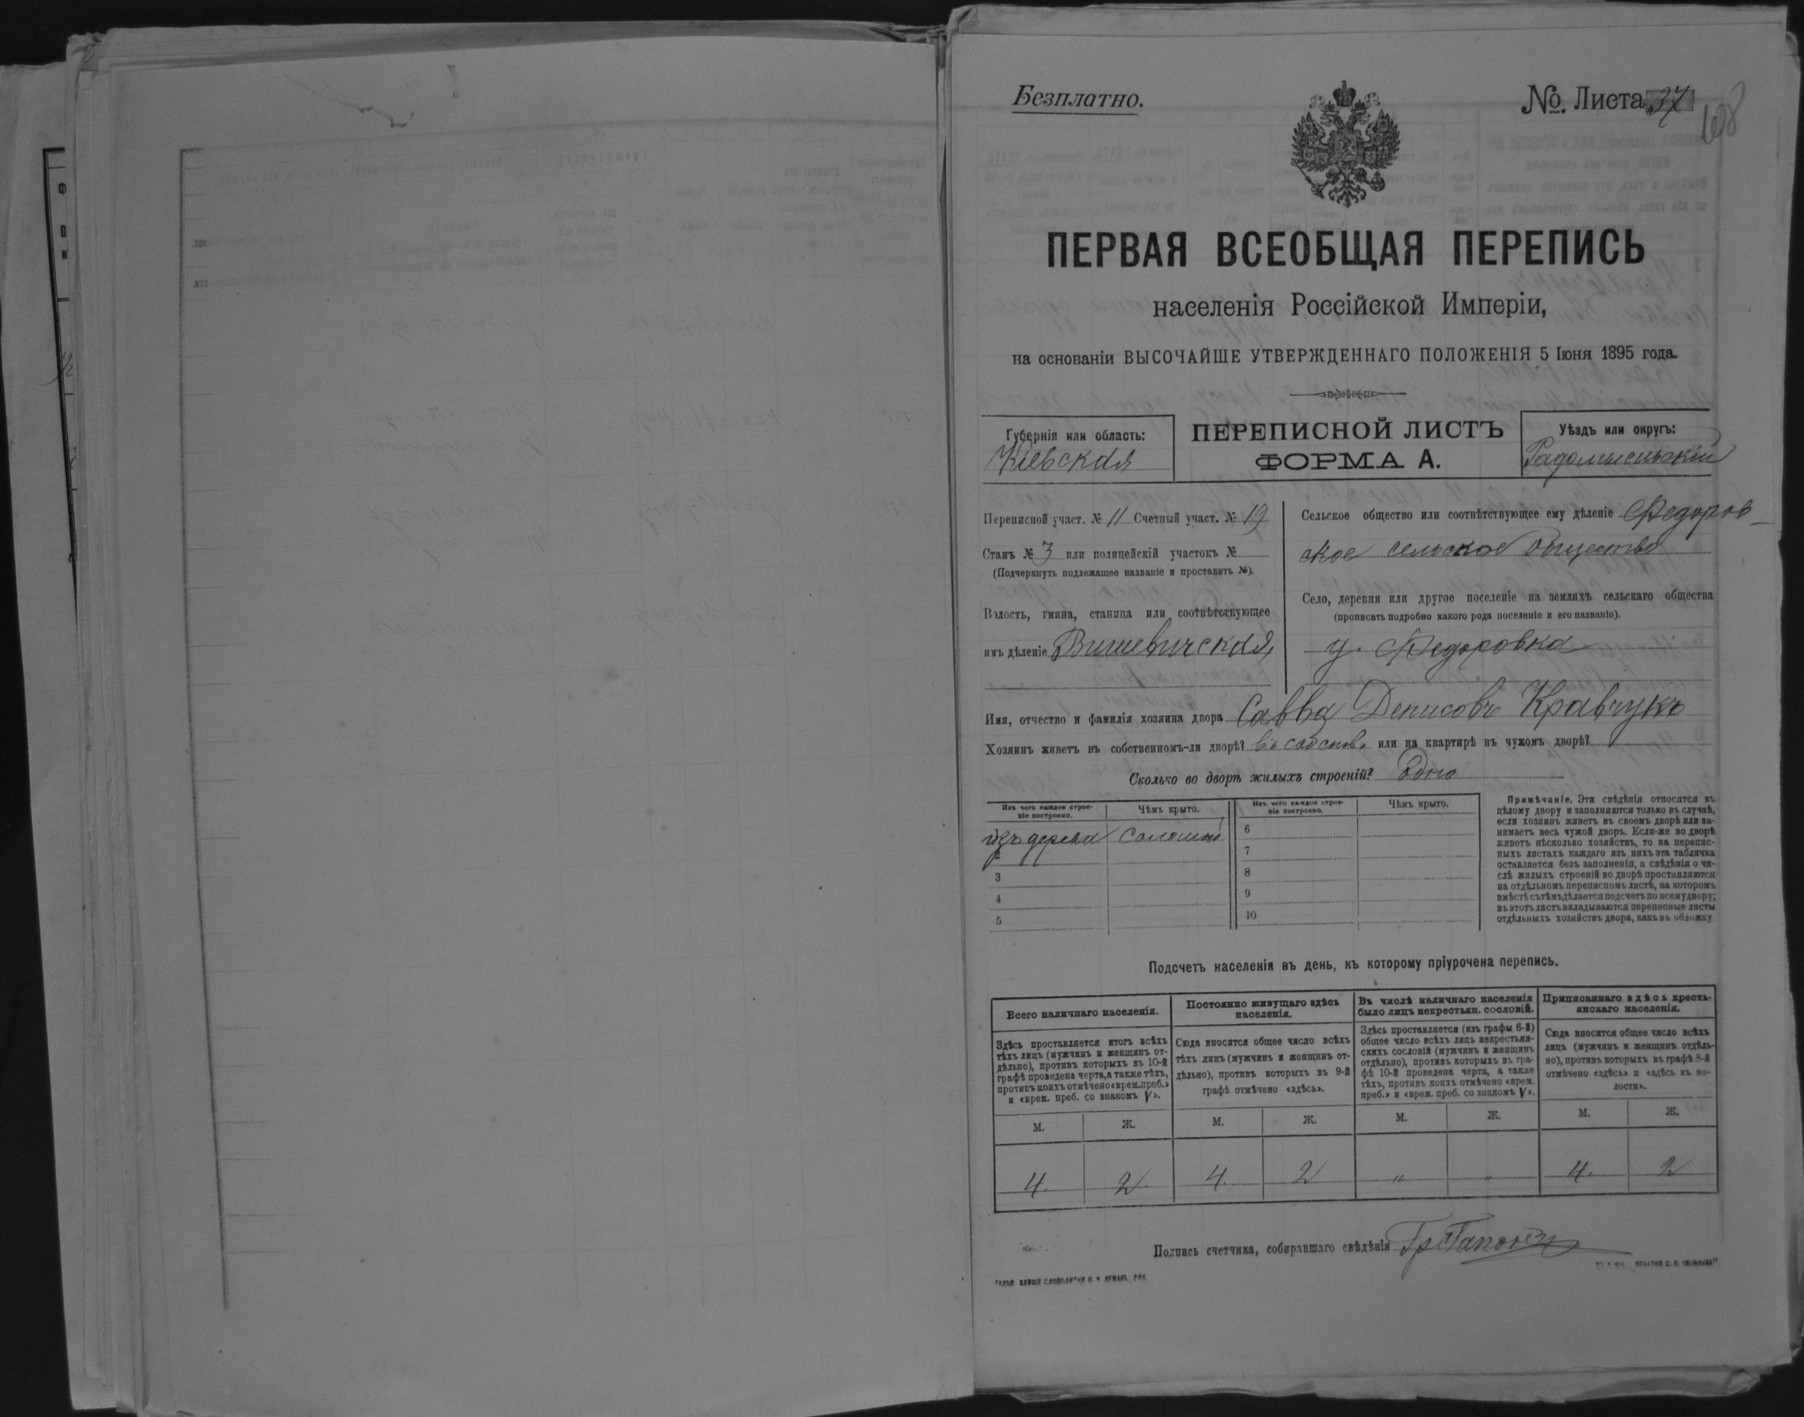 Безплатно.
№ Листа 37
108
ПЕРВАЯ ВСЕОБЩАЯ ПЕРЕПИСЬ
населенія Россійской Имперіи,
на основаніи ВЫСОЧАЙШЕ УТВЕРЖДЕННАГО ПОЛОЖЕНІЯ 5 Іюня 1895 года.
Губернія или область:
Кіевская
ПЕРЕПИСНОЙ ЛИСТЪ
ФОРМА А.
Уѣздъ или округъ:
Радомысльскій
Переписной участ. № 11 Счетный участ. № 19
Станъ № 3 или полицейскій участокъ №
(Подчеркнуть подлежащее названіе и проставить №).
Волость, гмина, станица или соотвѣтствующее
имъ дѣленіе Вишевичская,
Сельское общество или соотвѣтствующее ему дѣленіе Федоров-
ское сельское общество
Село, деревня или другое поселеніе на земляхъ сельскаго общества
(прописать подробно какого рода поселеніе и его названіе).
д. Федоровка
Имя, отчество и фамилія хозяина двора Савва Денисовъ Кравчукъ
Хозяинъ живетъ въ собственномъ-ли дворѣ? или на квартирѣ въ чужомъ дворѣ?
Сколько во дворѣ жилыхъ строеній? Одно
Изъ чего каждое строе-
ніе построено.
Чѣмъ крыто.
Изъ чего каждое строе-
ніе построено.
Чѣмъ крыто.
изъ дерева соломой
2
3
4
5
6
7
8
9
10
Примѣчаніе. Эти свѣдѣнія относятся къ
цѣлому двору и заполняются только въ случаѣ,
если хозяинъ живетъ въ своемъ дворѣ или за-
нимаетъ весь чужой дворъ. Если-же во дворѣ
живетъ нѣсколько хозяйствъ, то на перепис-
ныхъ листахъ каждаго изъ нихъ эта табличка
оставляется безъ заполненія, а свѣдѣнія о чи-
слѣ жилыхъ строеній во дворѣ проставляются
на отдѣльномъ переписномъ листѣ, на которомъ
вмѣстѣ съ тѣмъ дѣлается подсчетъ по всему двору;
въ этотъ листъ вкладываются переписные листы
отдѣльныхъ хозяйствъ двора, какъ въ обложку
Подсчетъ населенія въ день, къ которому пріурочена перепись.
Всего наличнаго населенія.
Здѣсь проставляется итогъ всѣхъ
тѣхъ лицъ (мужчинъ и женщинъ от-
дѣльно), противъ которыхъ въ 10-й
графѣ проведена черта, а также тѣхъ,
противъ коихъ отмѣчено «врем. преб.»
и «врем. преб. со знакомъ V».
Постоянно живущаго здѣсь
населенія.
Сюда вносится общее число всѣхъ
тѣхъ лицъ (мужчинъ и женщинъ от-
дѣльно), противъ которыхъ въ 9-й
графѣ отмѣчено «здѣсь».
Въ числѣ наличнаго населенія
было лицъ некрестьян. сословій.
Здѣсь проставляется (изъ графы 6-й)
общее число всѣхъ лицъ некрестьян-
скихъ сословій (мужчинъ и женщинъ
отдѣльно), противъ которыхъ въ гра-
фѣ 10-й проведена черта, а также
тѣхъ, противъ коихъ отмѣчено «врем.
преб.» и «врем. преб. со знакомъ V».
Приписаннаго здѣсь кресть-
янскаго населенія.
Сюда вносится общее число всѣхъ
лицъ (мужчинъ и женщинъ отдѣль-
но), противъ которыхъ въ графѣ 8-й
отмѣчено «здѣсь» и «здѣсь въ во-
лости».
М. Ж. М. Ж. М. Ж. М. Ж.
4. 2. 4. 2 " " 4. 2
Подпись счетчика, собиравшаго свѣдѣнія